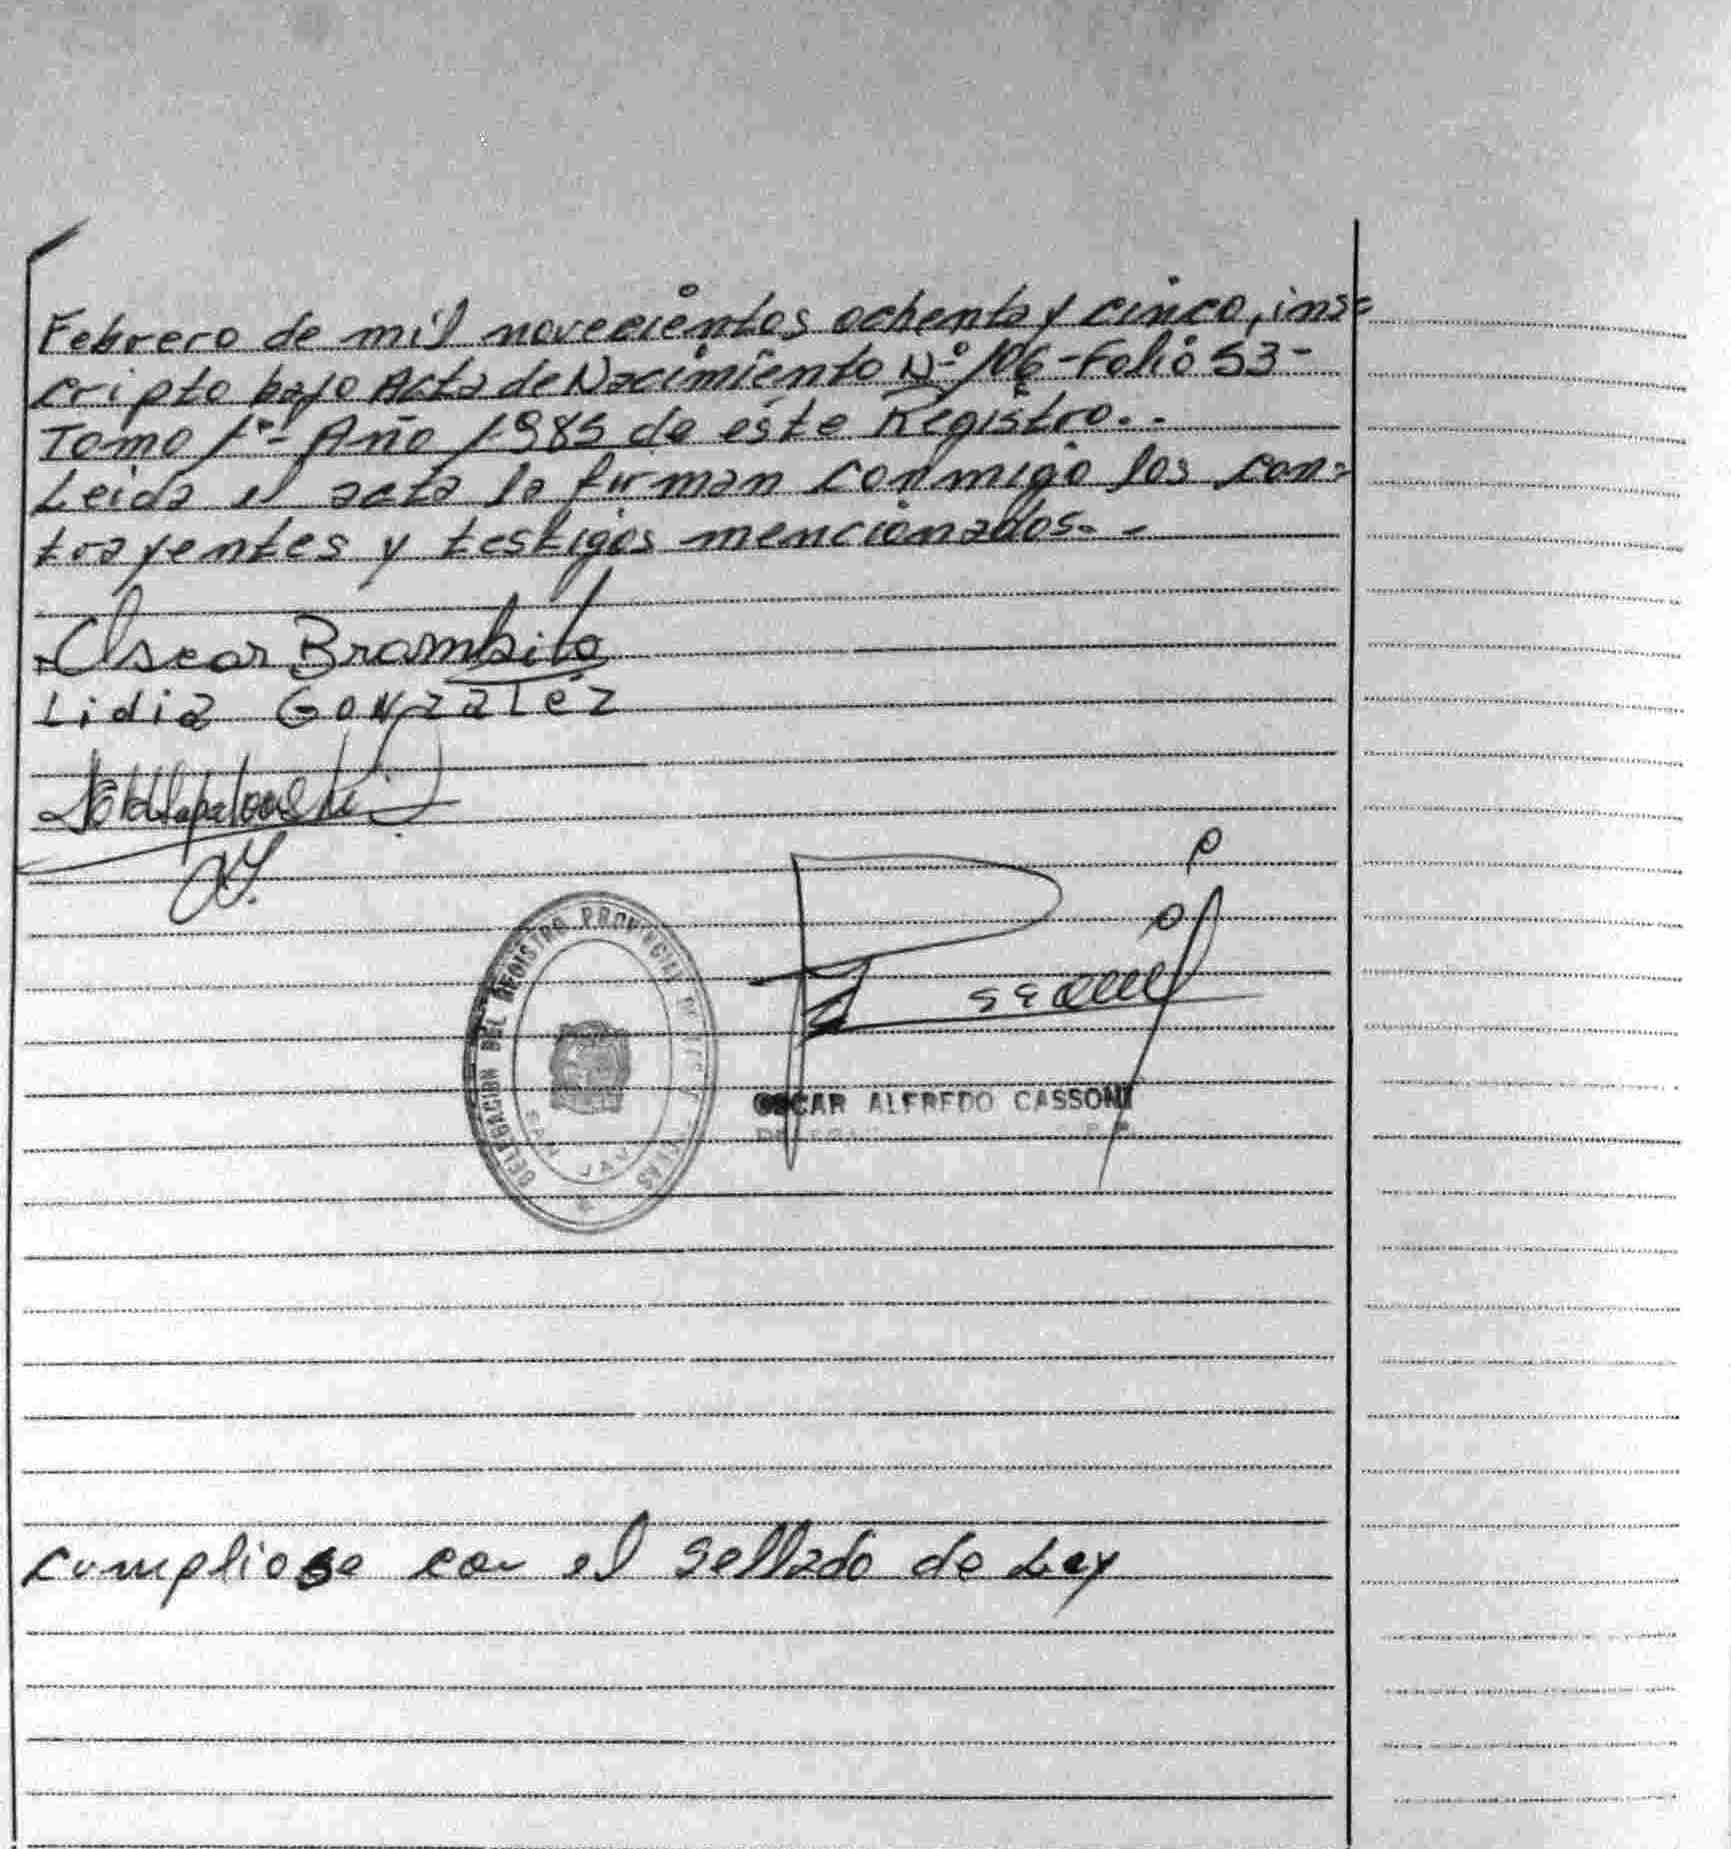 Febrero de mil novecientos ochenta y cinco, ins=
cripto bajo Acta de Nacimiento Nº 106 - Folio 53 -
Tomo 1º - Año 1985 de este Registro. -
Leida el acta la firman conmigo los con=
trayentes y testigos mencionados. -
Oscar Brambila
Lidia Gonzalez
DELEGACION DEL REGISTRO PROVINCIAL DE LAS
SAN JAV
OSCAR ALFREDO CASSONI
cumpliose con el sellado de Ley